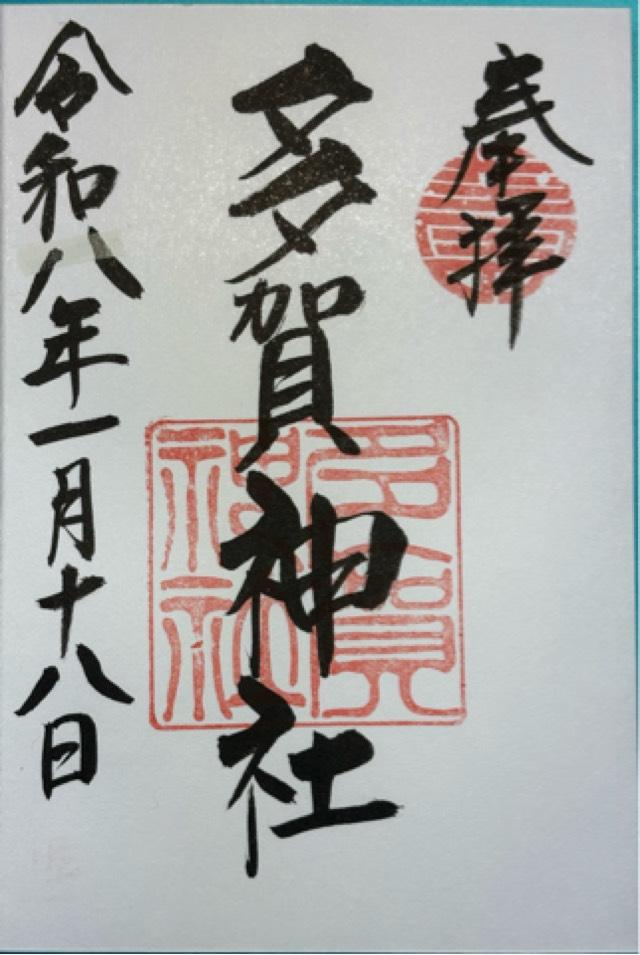 奉拝
多賀神社
令和八年一月十八日
多賀
神社